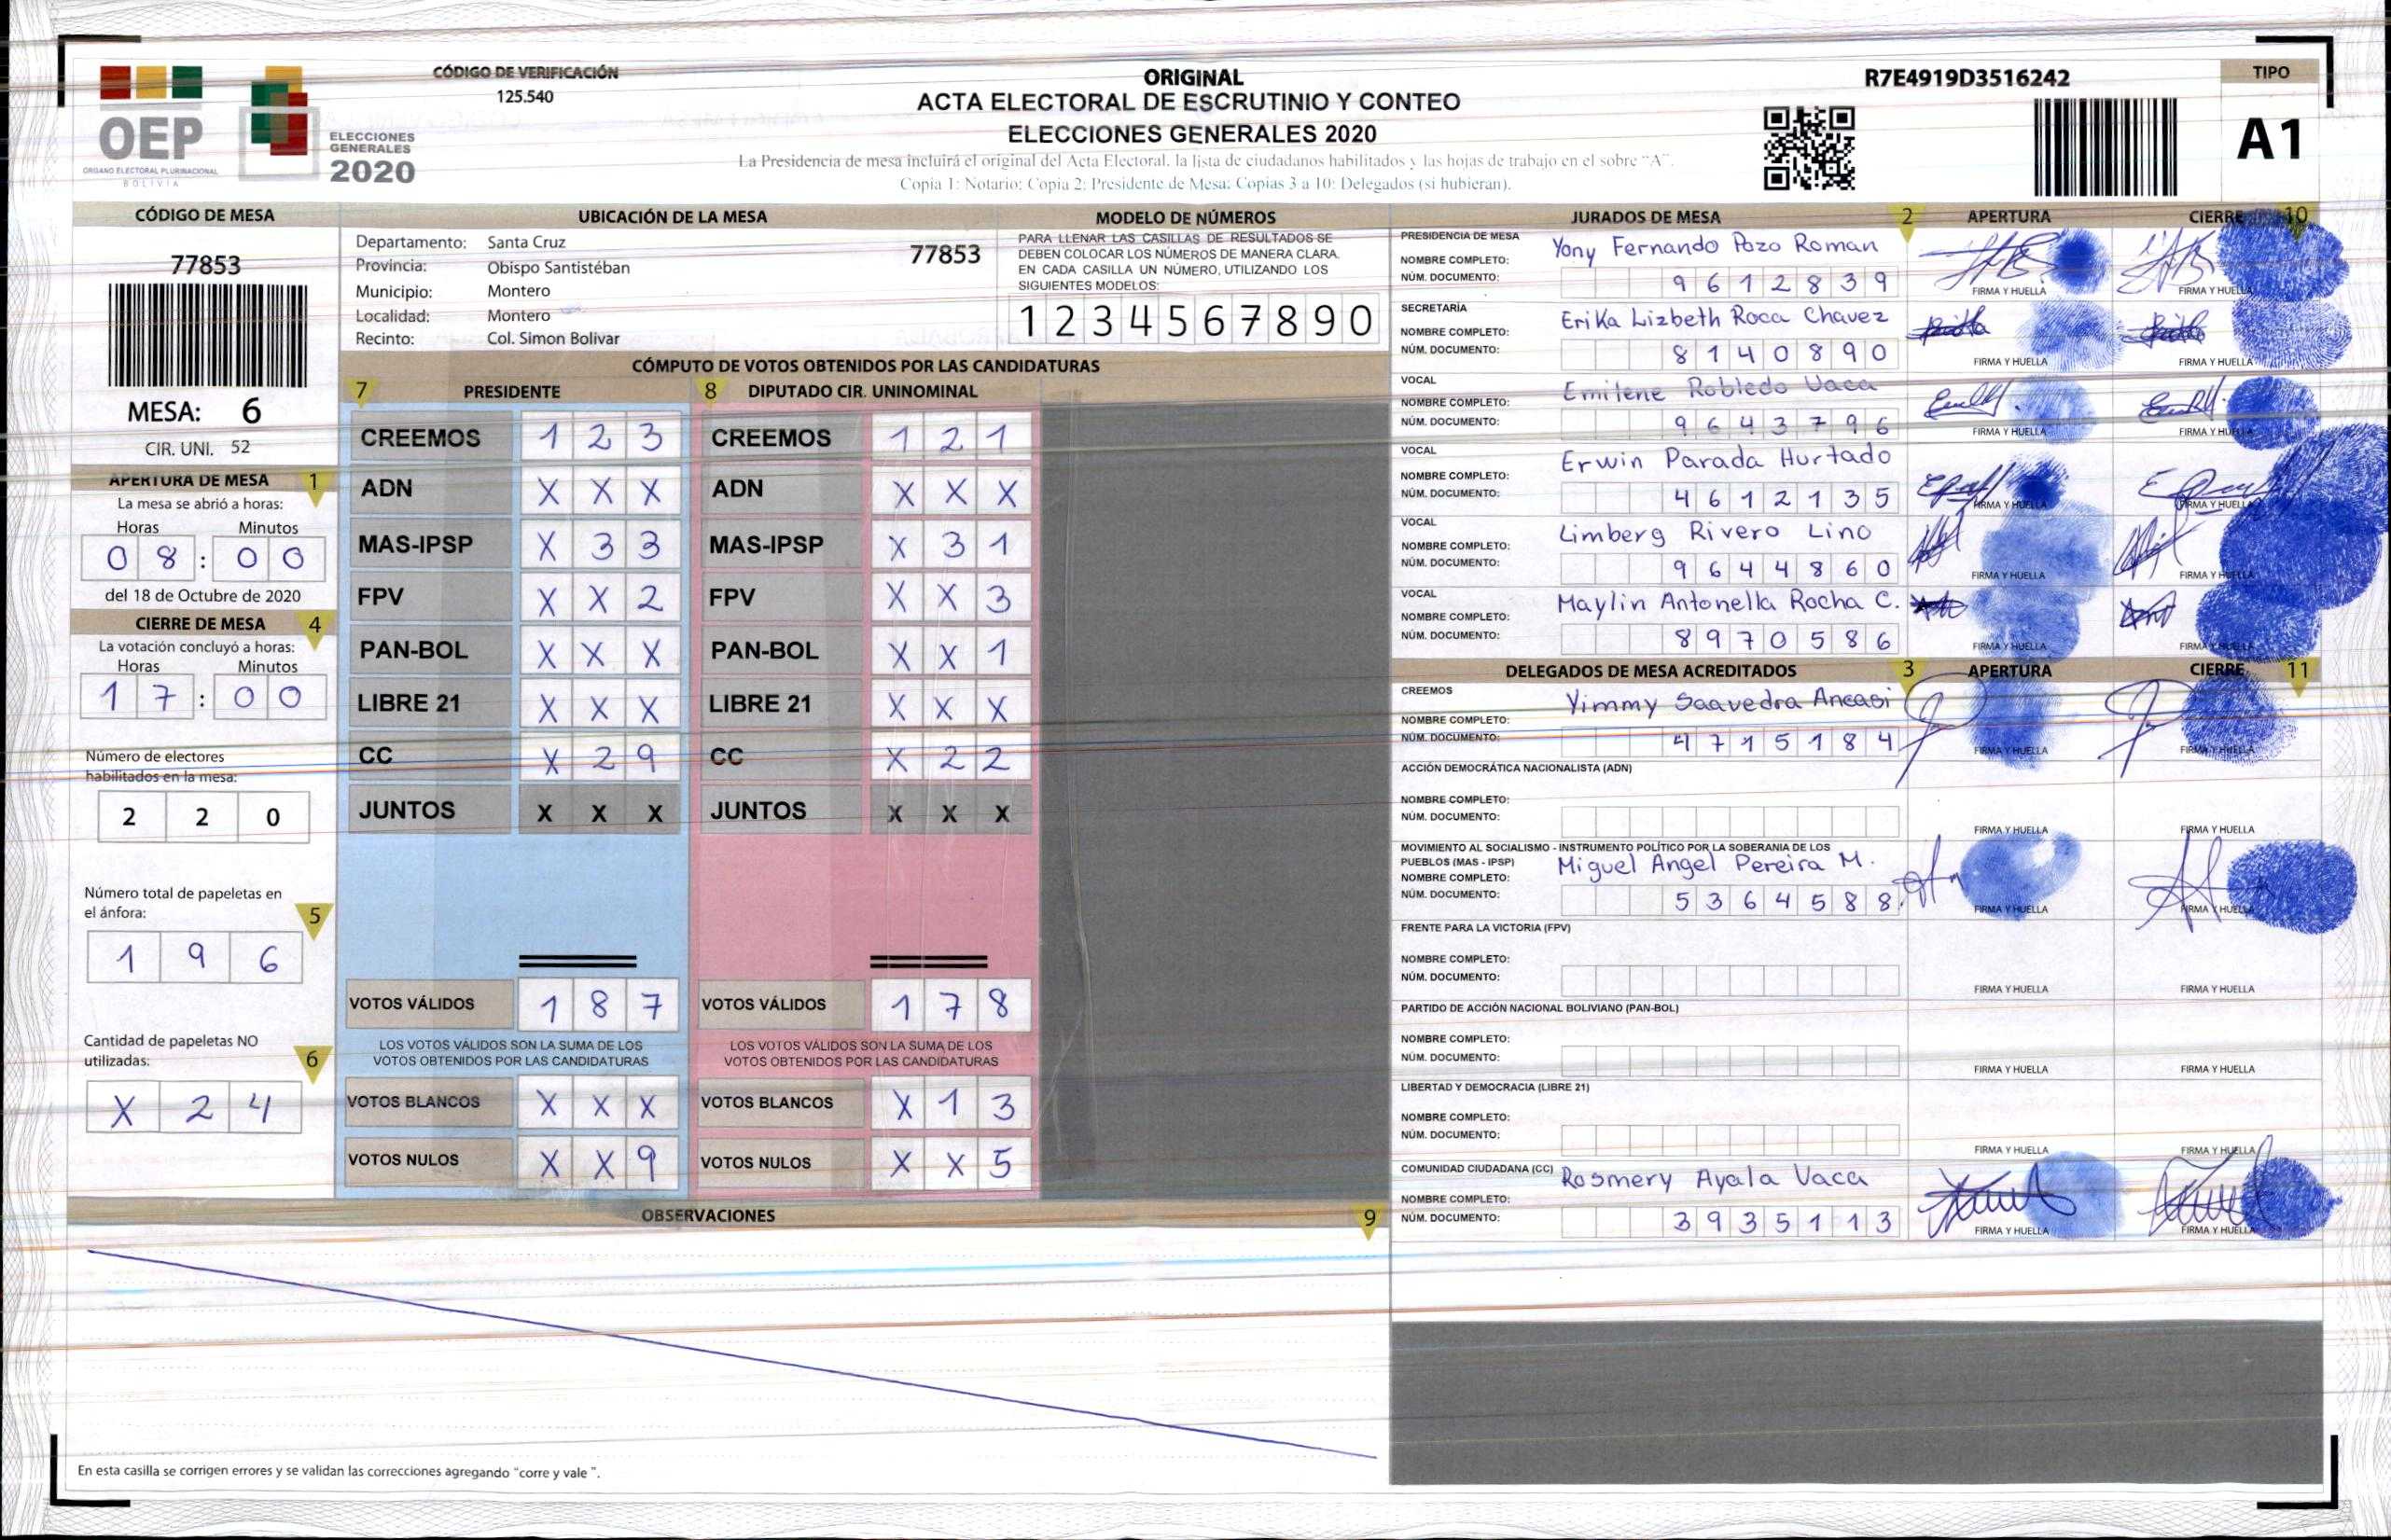 OEP
ORGANO ELECTORAL PLURINACIONAL
BOLIVIA
ELECCIONES
GENERALES
2020
CÓDIGO DE VERIFICACIÓN
125.540
ORIGINAL
ACTA ELECTORAL DE ESCRUTINIO Y CONTEO
ELECCIONES GENERALES 2020
La Presidencia de mesa incluirá el original del Acta Electoral, la lista de ciudadanos habilitados y las hojas de trabajo en el sobre "A".
Copia 1: Notario; Copia 2: Presidente de Mesa; Copias 3 a 10: Delegados (si hubieran).
R7E4919D3516242
TIPO
A1
CÓDIGO DE MESA
77853
MESA: 6
CIR. UNI. 52
APERTURA DE MESA 1
La mesa se abrió a horas:
Horas Minutos
0 8 : 0 0
del 18 de Octubre de 2020
CIERRE DE MESA 4
La votación concluyó a horas:
Horas Minutos
1 7 : 0 0
Número de electores
habilitados en la mesa:
2 2 0
Número total de papeletas en
el ánfora: 5
1 9 6
Cantidad de papeletas NO
utilizadas: 6
X 2 4
UBICACIÓN DE LA MESA
Departamento: Santa Cruz
77853
Provincia: Obispo Santistéban
Municipio: Montero
Localidad: Montero
Recinto: Col. Simon Bolivar
MODELO DE NÚMEROS
PARA LLENAR LAS CASILLAS DE RESULTADOS SE
DEBEN COLOCAR LOS NÚMEROS DE MANERA CLARA.
EN CADA CASILLA UN NÚMERO, UTILIZANDO LOS
SIGUIENTES MODELOS:
1 2 3 4 5 6 7 8 9 0
CÓMPUTO DE VOTOS OBTENIDOS POR LAS CANDIDATURAS
7 PRESIDENTE 8 DIPUTADO CIR. UNINOMINAL
CREEMOS 1 2 3 CREEMOS 1 2 1
ADN X X X ADN X X X
MAS-IPSP X 3 3 MAS-IPSP X 3 1
FPV X X 2 FPV X X 3
PAN-BOL X X X PAN-BOL X X 1
LIBRE 21 X X X LIBRE 21 X X X
CC X 2 9 CC X 2 2
JUNTOS X X X JUNTOS X X X
VOTOS VÁLIDOS 1 8 7 VOTOS VÁLIDOS 1 7 8
LOS VOTOS VÁLIDOS SON LA SUMA DE LOS LOS VOTOS VÁLIDOS SON LA SUMA DE LOS
VOTOS OBTENIDOS POR LAS CANDIDATURAS VOTOS OBTENIDOS POR LAS CANDIDATURAS
VOTOS BLANCOS X X X VOTOS BLANCOS X 1 3
VOTOS NULOS X X 9 VOTOS NULOS X X 5
OBSERVACIONES 9
En esta casilla se corrigen errores y se validan las correcciones agregando "corre y vale ".
JURADOS DE MESA 2 APERTURA CIERRE 10
PRESIDENCIA DE MESA
NOMBRE COMPLETO: Yony Fernando Pozo Roman
NÚM. DOCUMENTO: 9 6 1 2 8 3 9
FIRMA Y HUELLA FIRMA Y HUELLA
SECRETARÍA
NOMBRE COMPLETO: Erika Lizbeth Roca Chavez
NÚM. DOCUMENTO: 8 1 4 0 8 9 0
FIRMA Y HUELLA FIRMA Y HUELLA
VOCAL
NOMBRE COMPLETO: Emilene Robledo Vaca
NÚM. DOCUMENTO: 9 6 4 3 7 9 6
FIRMA Y HUELLA FIRMA Y HUELLA
VOCAL
NOMBRE COMPLETO: Erwin Parada Hurtado
NÚM. DOCUMENTO: 4 6 1 2 1 3 5
FIRMA Y HUELLA FIRMA Y HUELLA
VOCAL
NOMBRE COMPLETO: Limberg Rivero Lino
NÚM. DOCUMENTO: 9 6 4 4 8 6 0
FIRMA Y HUELLA FIRMA Y HUELLA
VOCAL
NOMBRE COMPLETO: Maylin Antonella Rocha C.
NÚM. DOCUMENTO: 8 9 7 0 5 8 6
FIRMA Y HUELLA FIRMA Y HUELLA
DELEGADOS DE MESA ACREDITADOS 3 APERTURA CIERRE 11
CREEMOS
NOMBRE COMPLETO: Yimmy Saavedra Ancasi
NÚM. DOCUMENTO: 4 7 1 5 1 8 4
FIRMA Y HUELLA FIRMA Y HUELLA
ACCIÓN DEMOCRÁTICA NACIONALISTA (ADN)
NOMBRE COMPLETO:
NÚM. DOCUMENTO:
FIRMA Y HUELLA FIRMA Y HUELLA
MOVIMIENTO AL SOCIALISMO - INSTRUMENTO POLÍTICO POR LA SOBERANIA DE LOS
PUEBLOS (MAS - IPSP)
NOMBRE COMPLETO: Miguel Angel Pereira M.
NÚM. DOCUMENTO: 5 3 6 4 5 8 8
FIRMA Y HUELLA FIRMA Y HUELLA
FRENTE PARA LA VICTORIA (FPV)
NOMBRE COMPLETO:
NÚM. DOCUMENTO:
FIRMA Y HUELLA FIRMA Y HUELLA
PARTIDO DE ACCIÓN NACIONAL BOLIVIANO (PAN-BOL)
NOMBRE COMPLETO:
NÚM. DOCUMENTO:
FIRMA Y HUELLA FIRMA Y HUELLA
LIBERTAD Y DEMOCRACIA (LIBRE 21)
NOMBRE COMPLETO:
NÚM. DOCUMENTO:
FIRMA Y HUELLA FIRMA Y HUELLA
COMUNIDAD CIUDADANA (CC)
NOMBRE COMPLETO: Rosmery Ayala Vaca
NÚM. DOCUMENTO: 3 9 3 5 1 1 3
FIRMA Y HUELLA FIRMA Y HUELLA